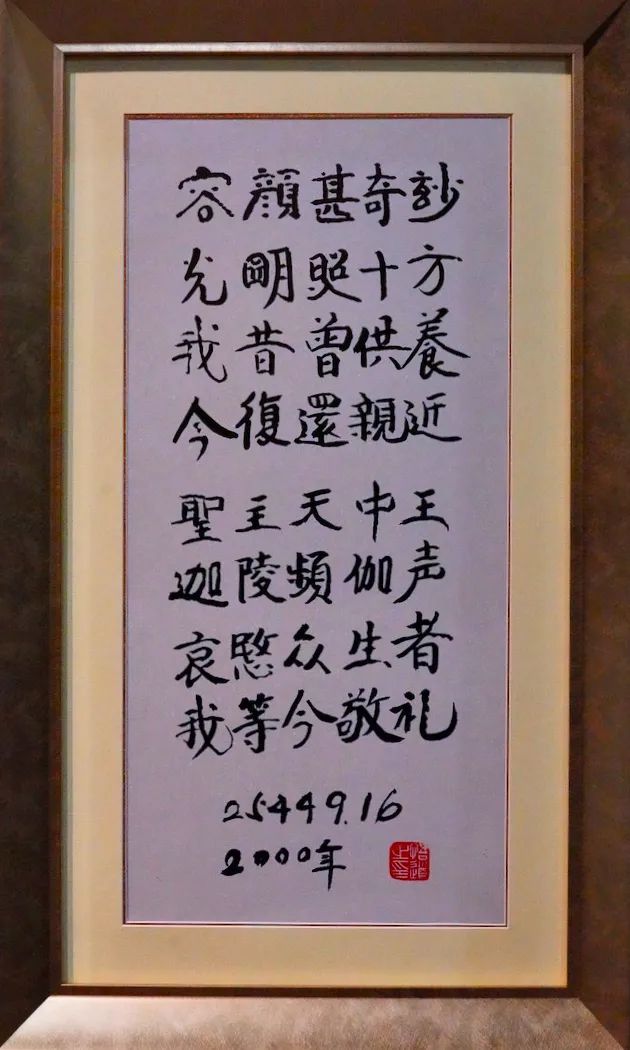 容顔甚奇妙
光明照十方
我昔曾供養
今復還親近
聖主天中王
迦陵頻伽声
哀愍众生者
我等今敬礼
2544 9.16
2000年